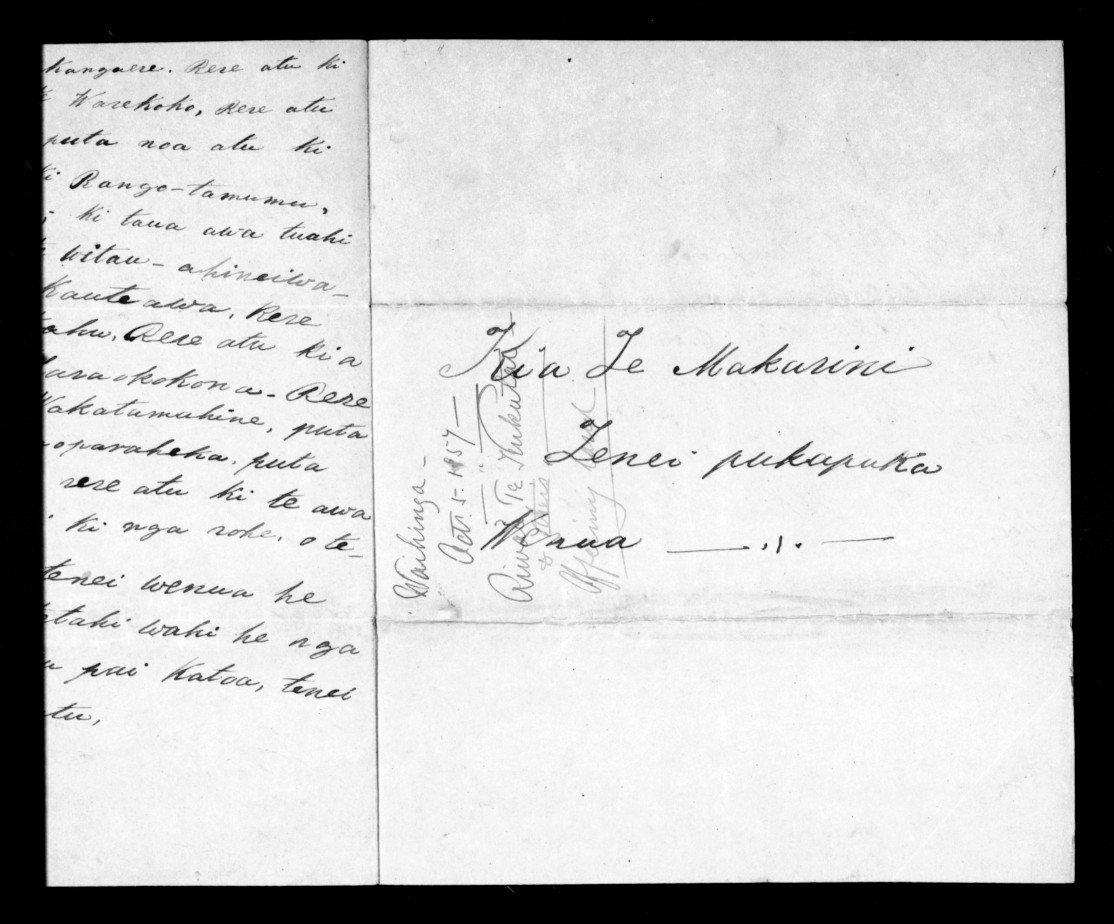 kangaere. Rere atu ki
Warekoko, Rere atu
puta noa atu ki
ki Rango-tamumu,
ki taua awa tuahi
witau - ahineiwa-
Kauteawa. Rere
tahu. Rere atu ki a
araokokona - Rere
Wakatamahine, puta
oparaheka, puta
rere atu ki te awa
ki nga rohe. o te-
tenei wenua he
tetahi wahi he nga
pai Katoa, tenei
tu,
Kia Te Makarini
Tenei pukapuka
Wenua
Waihinga -
Octr 5. 1857 -
Te Kukutai
& others
Offering land